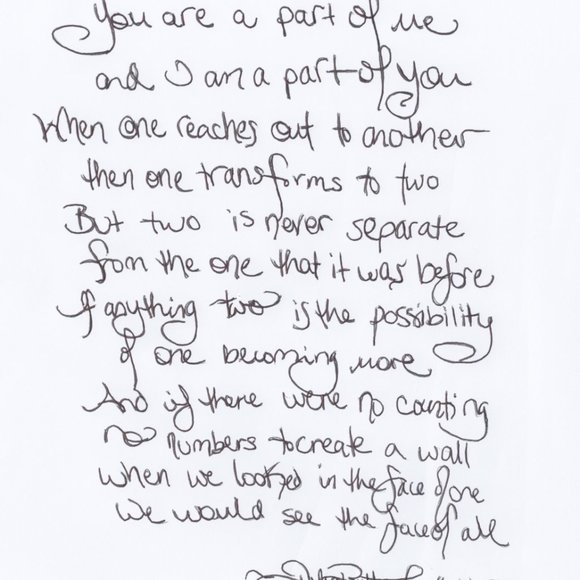 You are a part of me
and I am a part of you
When one reaches out to another
then one transforms to two
But two is never separate
from the one that it was before
If anything two is the possibility
of one becoming more
And if there were no counting
no numbers to create a wall
when we looked in the face of one
We would see the face of all